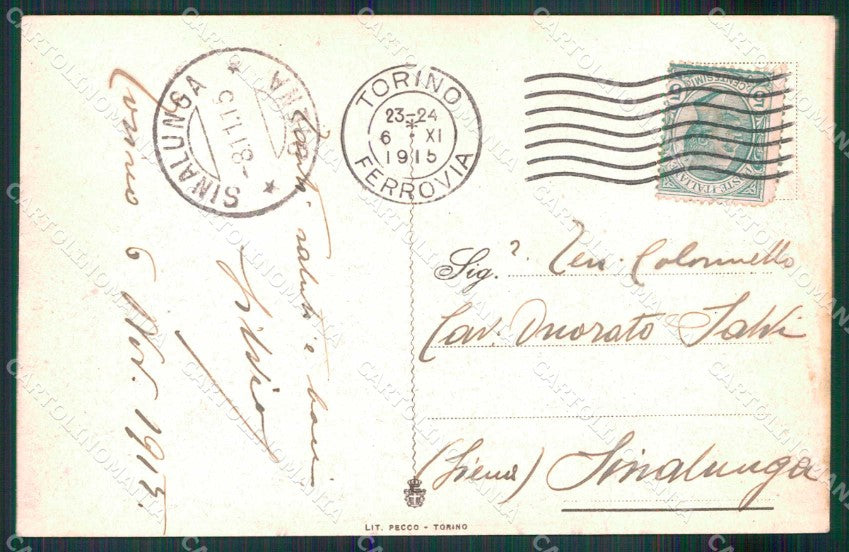 Torino 6 Nov. 1915.
Tanti saluti e baci
Silvio
SINALUNGA
SIENA
8.11.15
TORINO
23-24
6 XI
1915
FERROVIA
POSTE ITALIANE
CENTESIMI
5 5
Sig.r Ten. Colonnello
Cav. Onorato Salvi
(Siena) Sinalunga
LIT. PECCO - TORINO
CARTOLINOMANIA